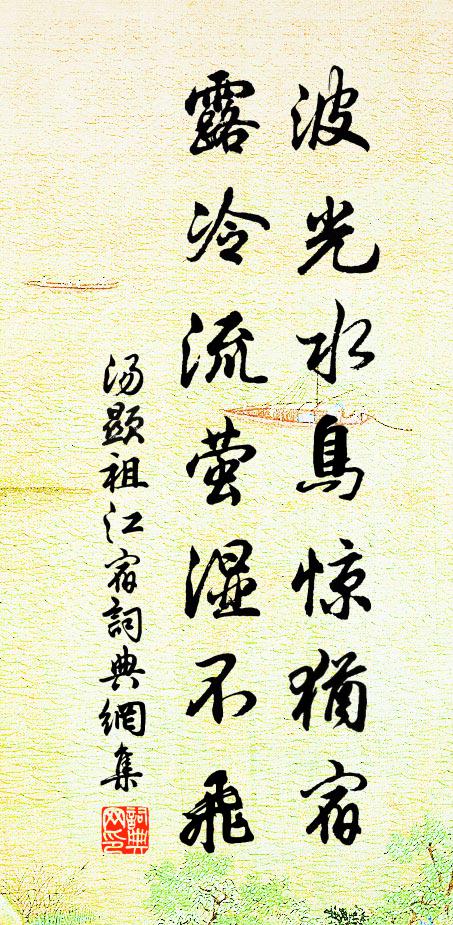 波光水鳥惊猶宿
露冷流萤湿不飛
汤顯祖江宿詞典網集
詞典網印